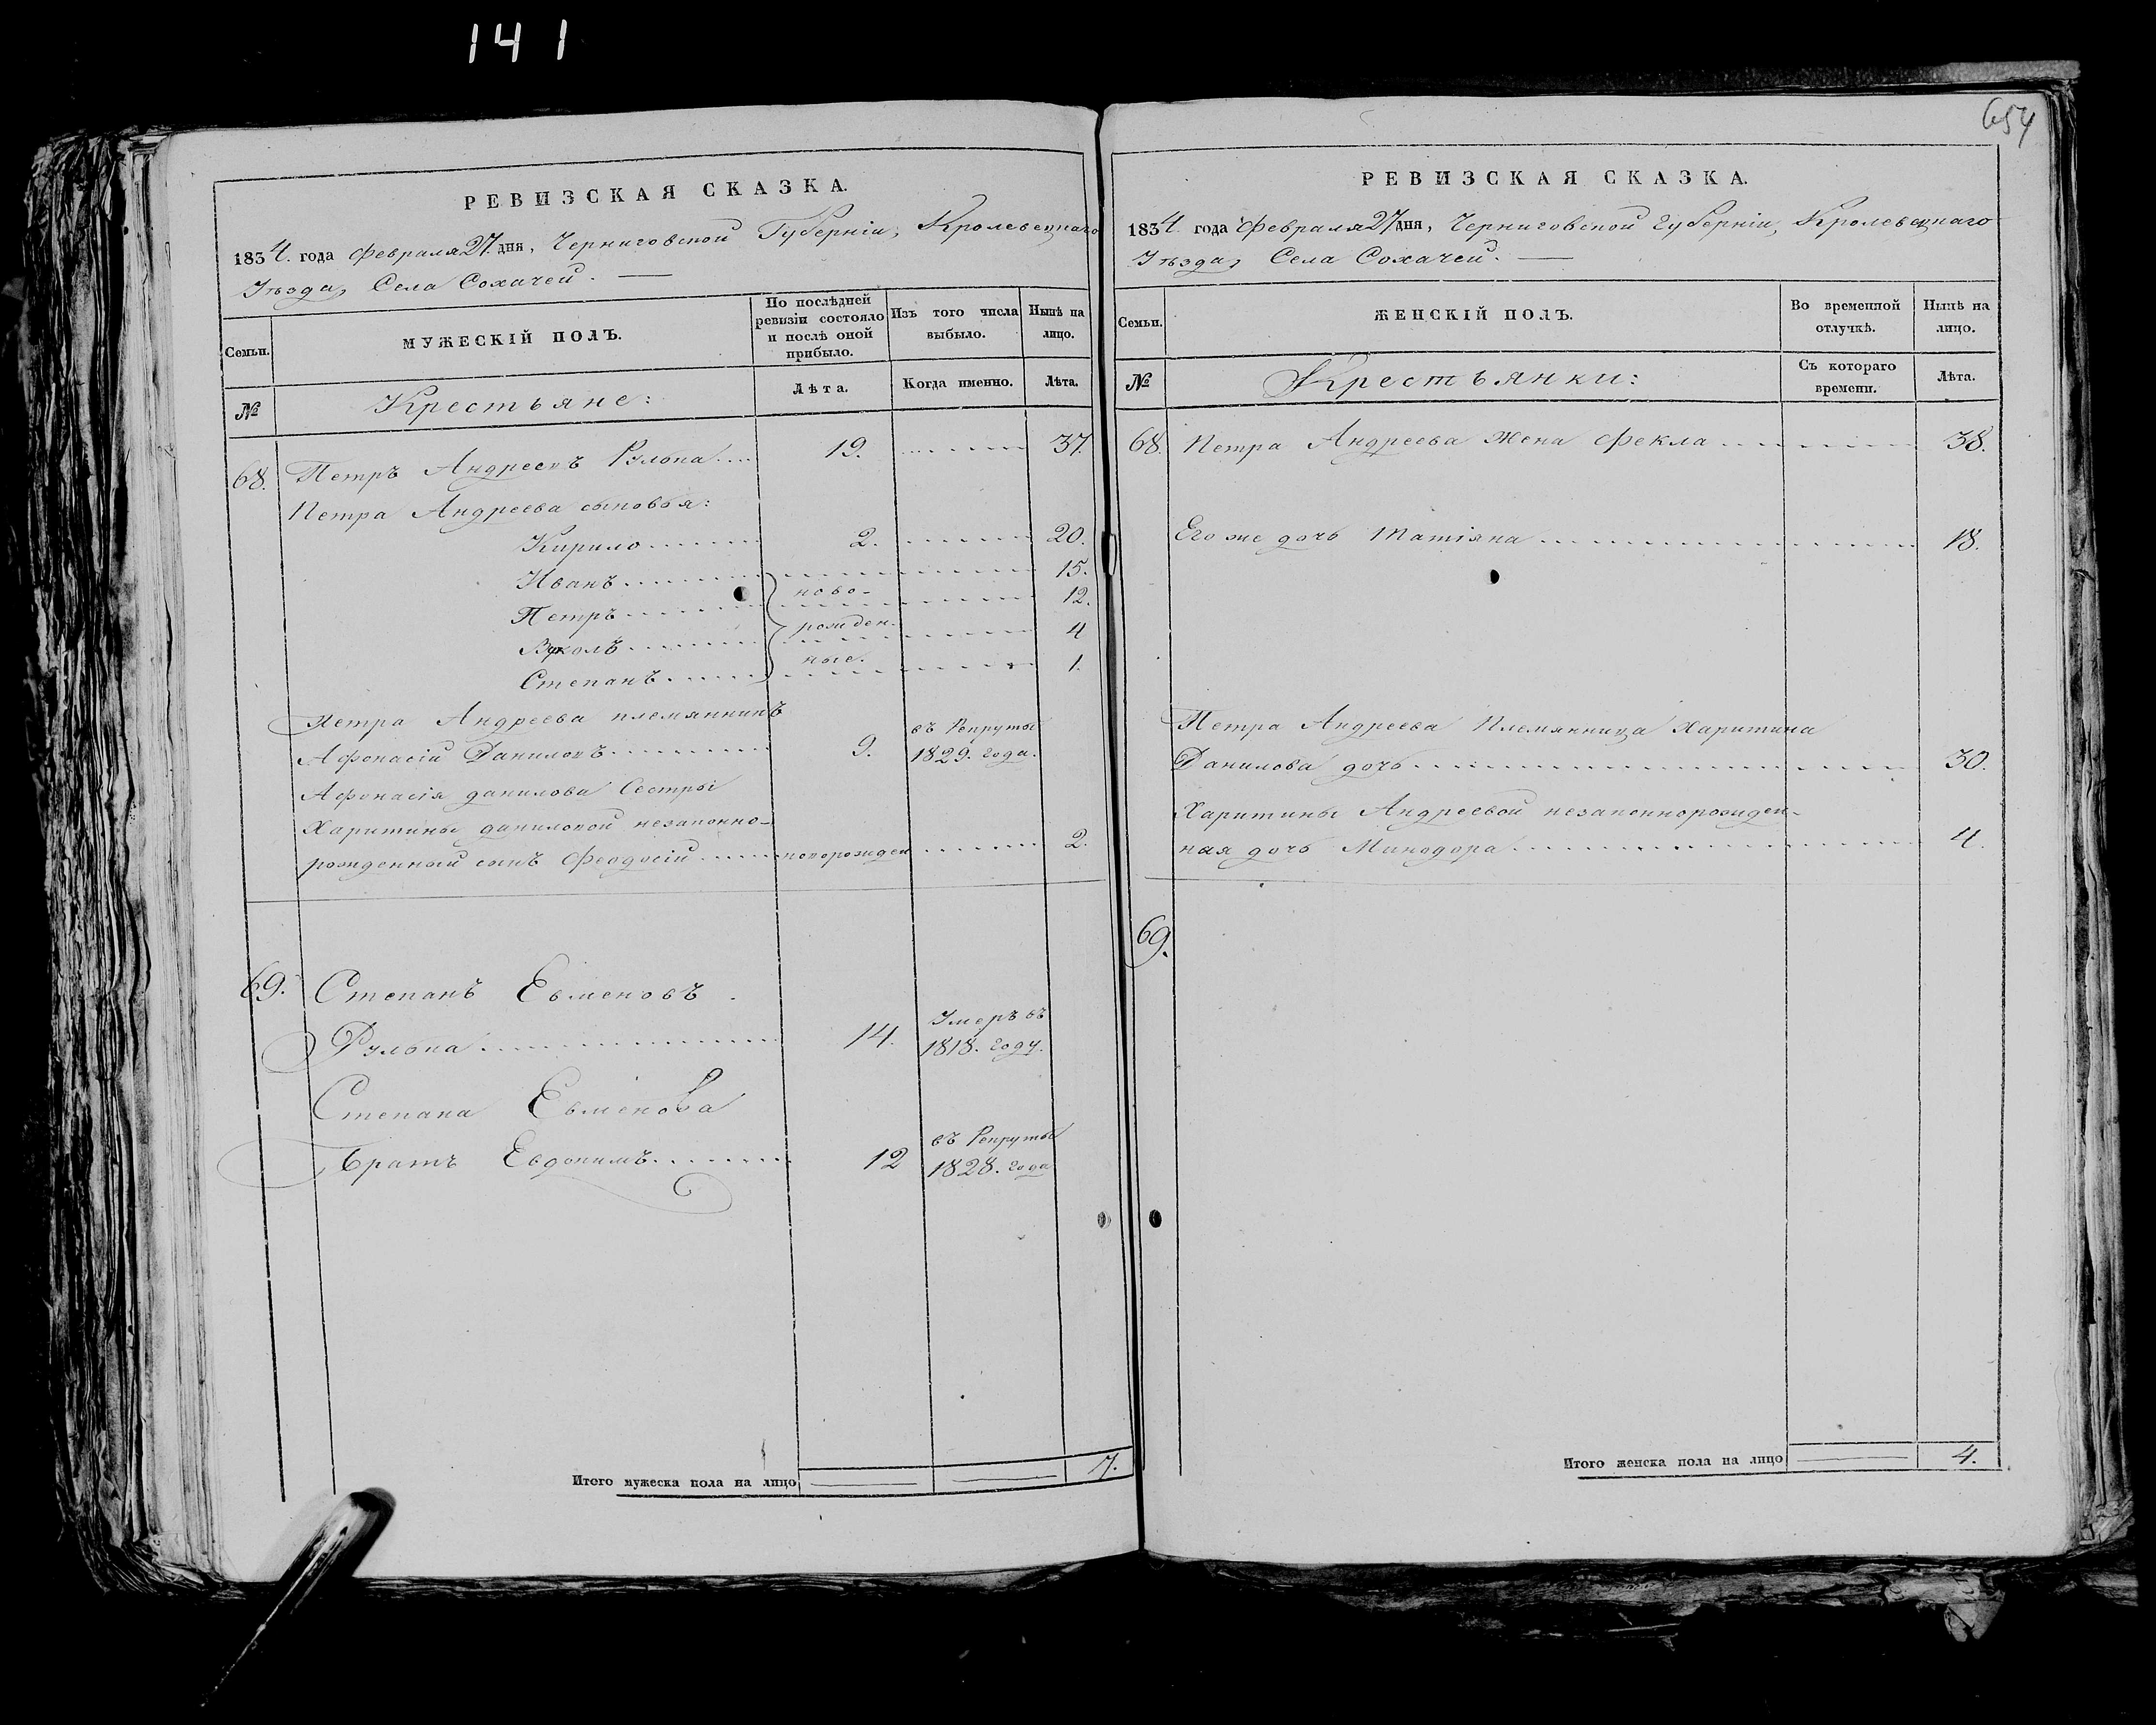 141
654
РЕВИЗСКАЯ СКАЗКА.
1834. года Февраля 27. дня, Черниговской Губерніи, Кролевецкаго
Уѣзда, Села Сохачей.
Семьи.
МУЖЕСКІЙ ПОЛЪ.
По послѣдней ревизіи состояло и послѣ оной прибыло.
Изъ того числа выбыло.
Нынѣ на лицо.
№
Крестьяне:
Лѣта.
Когда именно.
Лѣта.
68. Петръ Андреевъ Рулька 19. 37.
Петра Андреева сыновья:
Кирило 2. 20.
Иванъ ново- 15.
Петръ 12.
Вуколъ рожден- 4
Степанъ ные. 1.
Петра Андреева племянникъ въ Рекруты
Афонасій Даниловъ 9. 1829. года.
Афонасія данилова Сестры
Харитины даниловой незаконно-
рожденный сынъ Феодосій новорожден 2.
69. Степанъ Евменовъ
Умеръ въ
Рулька 14. 1818. году.
Степана Евменова
въ Рекруты
Братъ Евдокимъ 12 1828. года
Итого мужеска пола на лицо 7.
РЕВИЗСКАЯ СКАЗКА.
1834. года Февраля 27 дня, Черниговской Губерніи, Кролевецкаго
Уѣзда, Села Сохачей.
Семьи.
ЖЕНСКІЙ ПОЛЪ.
Во временной отлучкѣ.
Нынѣ на лицо.
№
Крестьянки:
Съ котораго времени.
Лѣта.
68. Петра Андреева Жена Фекла 38.
Его же дочь Татіяна 18.
Петра Андреева Племянница Харитина
Данилова дочь 30.
Харитины Андреевой незаконнорожден-
ная дочь Минодора 4.
69.
Итого женска пола на лицо 4.